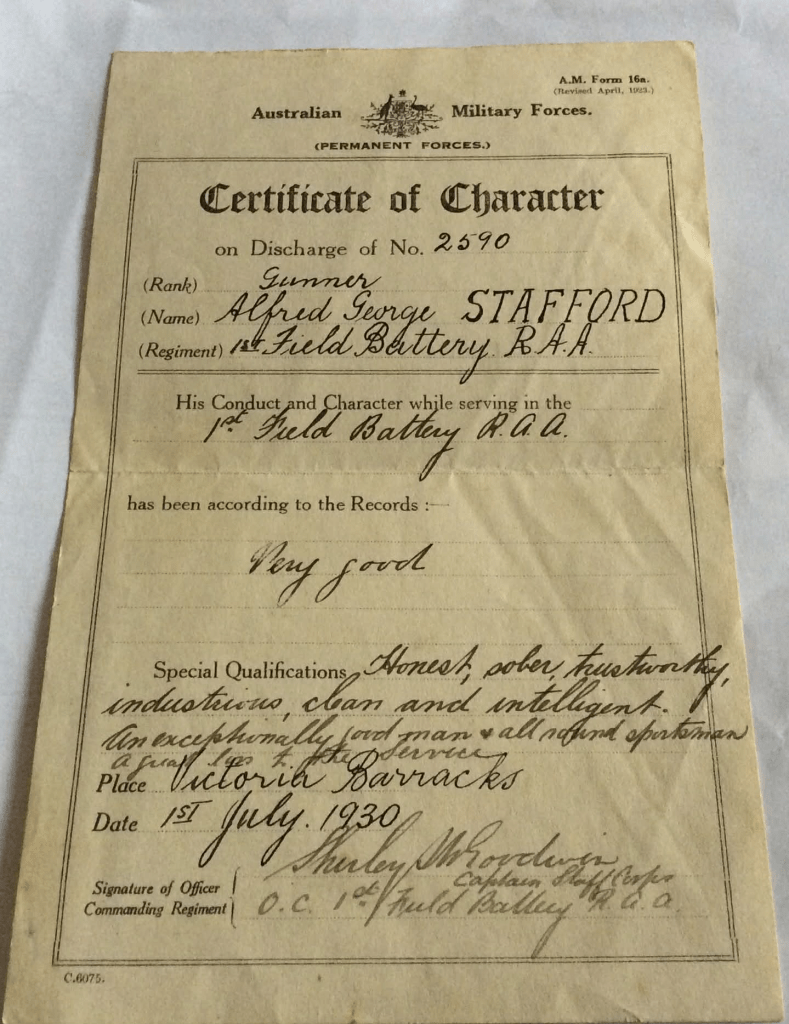 A.M. Form 16a.
(Revised April, 1923.)
Australian Military Forces.
(PERMANENT FORCES.)
Certificate of Character
on Discharge of No. 2590
(Rank) Gunner
(Name) Alfred George STAFFORD
(Regiment) 1st Field Battery R.A.A.
His Conduct and Character while serving in the
1st Field Battery R.A.A.
has been according to the Records :—
Very good
Special Qualifications Honest, sober, trustworthy,
industrious, clean and intelligent.
An exceptionally good man & all round sportsman
a great loss to the Service
Place Victoria Barracks
Date 1ST July. 1930
Shirley Goodwin
Captain Staff Corps
Signature of Officer
Commanding Regiment
O.C. 1st Field Battery R.A.A.
C.6075.